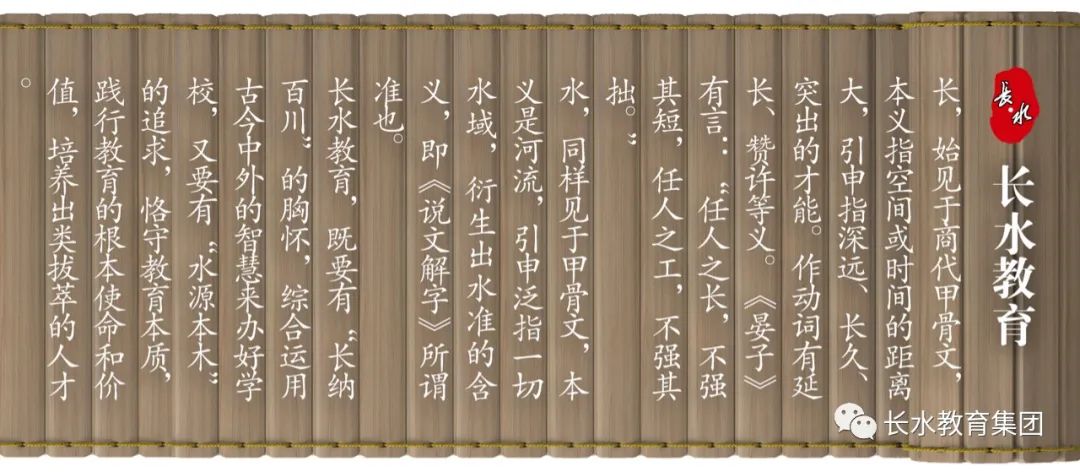 长水
长水教育
长，始见于商代甲骨文，
本义指空间或时间的距离
大，引申指深远、长久、
突出的才能。作动词有延
长、赞许等义。《晏子》
有言：“任人之长，不强
其短，任人之工，不强其
拙。”
水，同样见于甲骨文，本
义是河流，引申泛指一切
水域，衍生出水准的含
义，即《说文解字》所谓
准也。
长水教育，既要有“长纳
百川”的胸怀，综合运用
古今中外的智慧来办好学
校，又要有“水源本木”
的追求，恪守教育本质，
践行教育的根本使命和价
值，培养出类拔萃的人才
。
长水教育集团